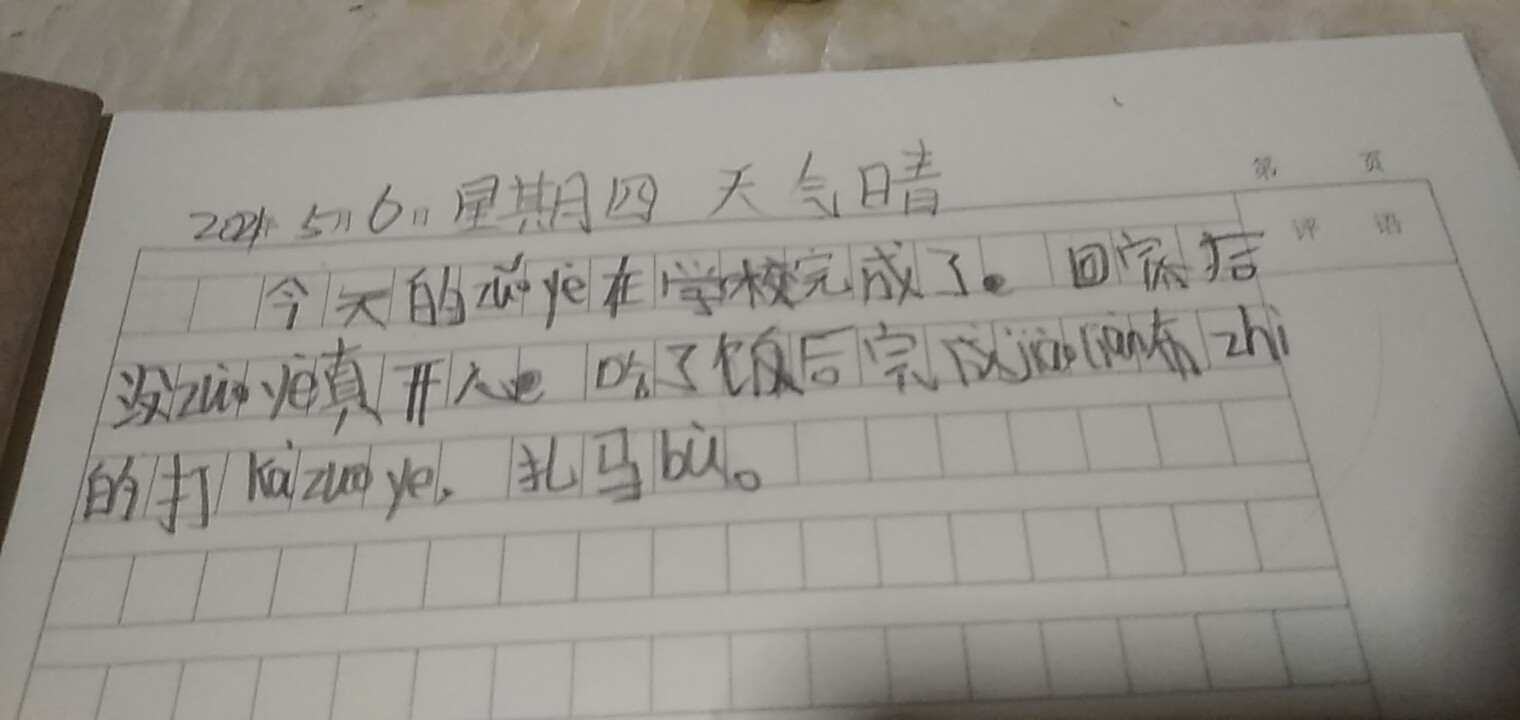 2021. 5月6日 星期四 天气晴
第 页
评 语
今天的zuò yè在学校完成了。回家后
没zuò yè真开心e 吃了饭后完成jiào liàn布zhi
的打kǎzuo ye、扎马bù。